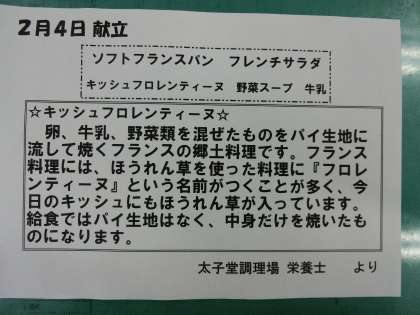 2月4日 献立
ソフトフランスパン　フレンチサラダ
キッシュフロレンティーヌ　野菜スープ　牛乳
☆キッシュフロレンティーヌ☆
　卵、牛乳、野菜類を混ぜたものをパイ生地に
流して焼くフランスの郷土料理です。フランス
料理には、ほうれん草を使った料理に『フロレ
ンティーヌ』という名前がつくことが多く、今
日のキッシュにもほうれん草が入っています。
給食ではパイ生地はなく、中身だけを焼いたも
のになります。
太子堂調理場 栄養士　　より